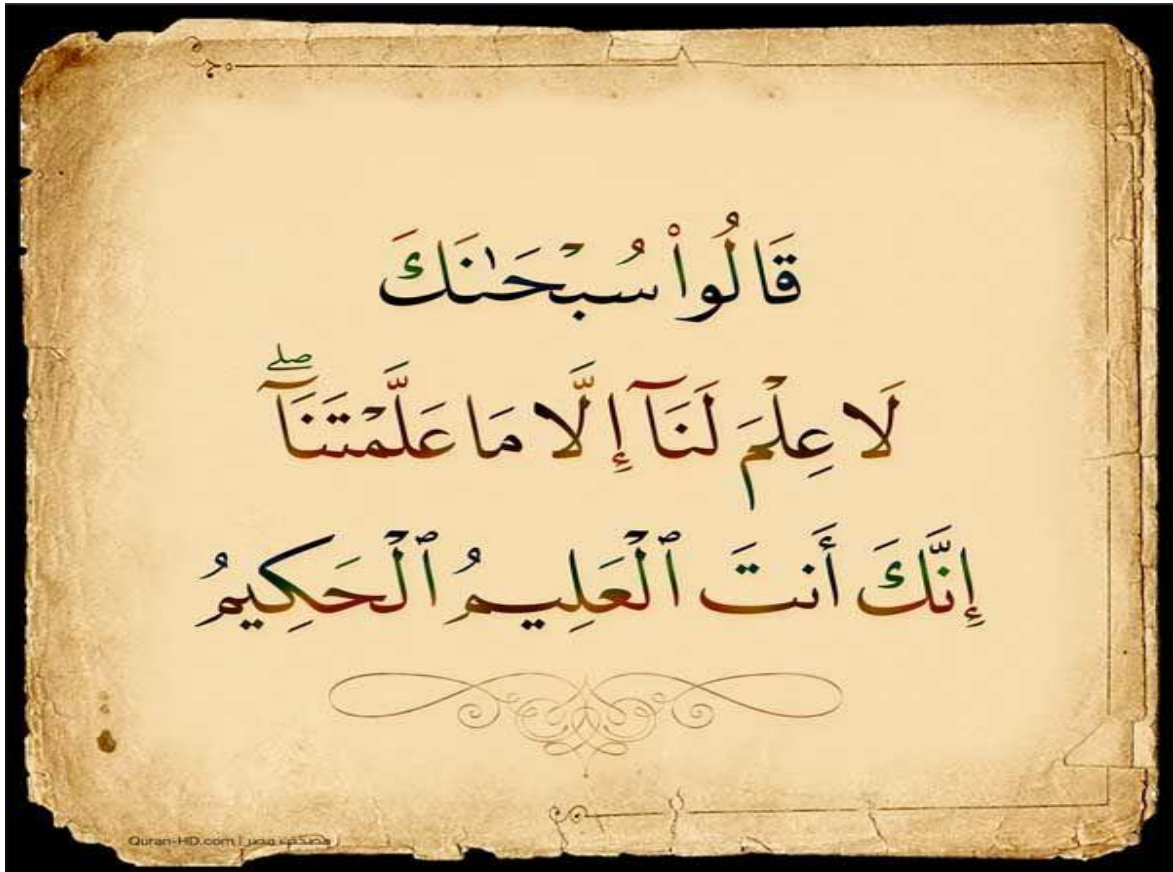 قَالُوا۟ سُبْحَـٰنَكَ
لَا عِلْمَ لَنَآ إِلَّا مَا عَلَّمْتَنَآ ۖ
إِنَّكَ أَنتَ ٱلْعَلِيمُ ٱلْحَكِيمُ
Quran-HD.com | مصحف مصر |